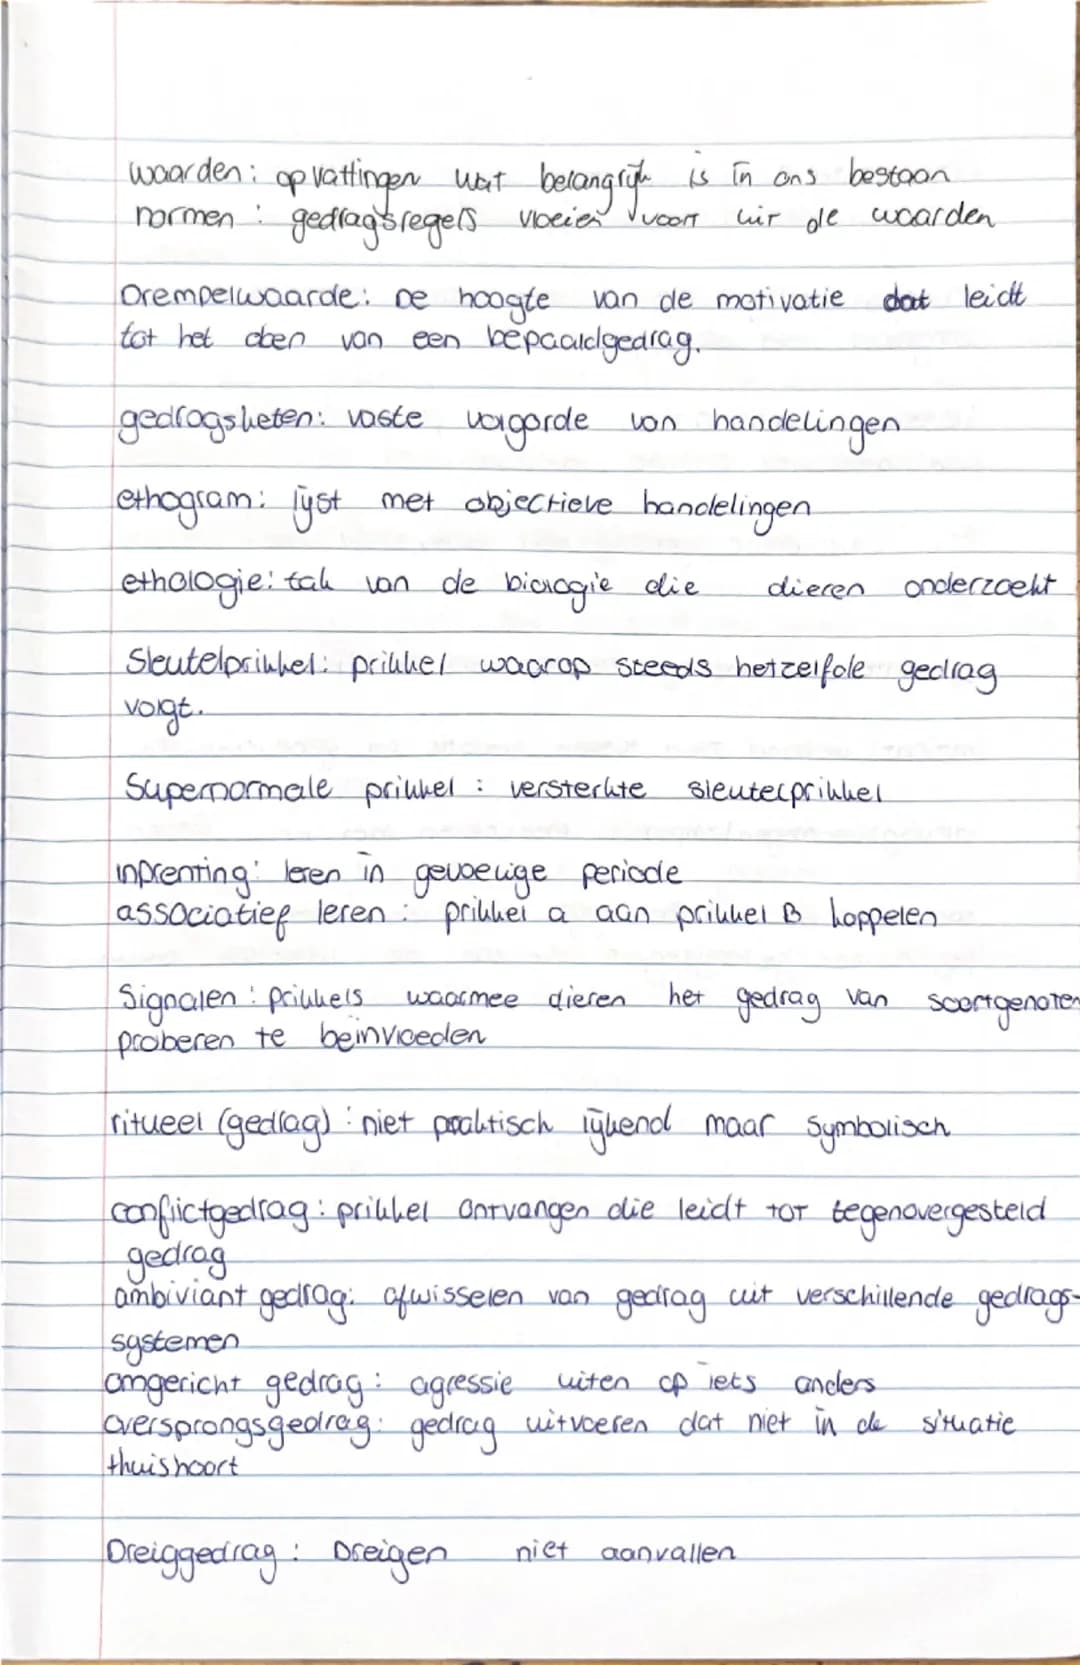 waarden: opvattingen wat belangrijk is in ons bestaan
normen : gedragsregels vloeien voort uit de waarden
Drempelwaarde: De hoogte van de motivatie dat leidt
tot het doen van een bepaaldgedrag.
gedragsketen: vaste volgorde van handelingen
ethogram: lijst met objectieve handelingen
ethologie: tak van de biologie die dieren onderzoekt
Sleutelprikkel: prikkel waarop steeds hetzelfde gedrag
volgt.
Supernormale prikkel : versterkte sleutelprikkel
inprenting: leren in gevoelige periode
associatief leren : prikkel a aan prikkel B koppelen
Signalen : prikkels waarmee dieren het gedrag van soortgenoten
proberen te beinvloeden
ritueel (gedrag) : niet praktisch lijkend maar symbolisch
conflictgedrag : prikkel ontvangen die leidt tot tegenovergesteld
gedrag
ambiviant gedrag: afwisselen van gedrag uit verschillende gedrags-
systemen
omgericht gedrag : agressie uiten op iets anders
oversprongsgedrag: gedrag uitvoeren dat niet in de situatie
thuishoort
Dreiggedrag : Dreigen niet aanvallen